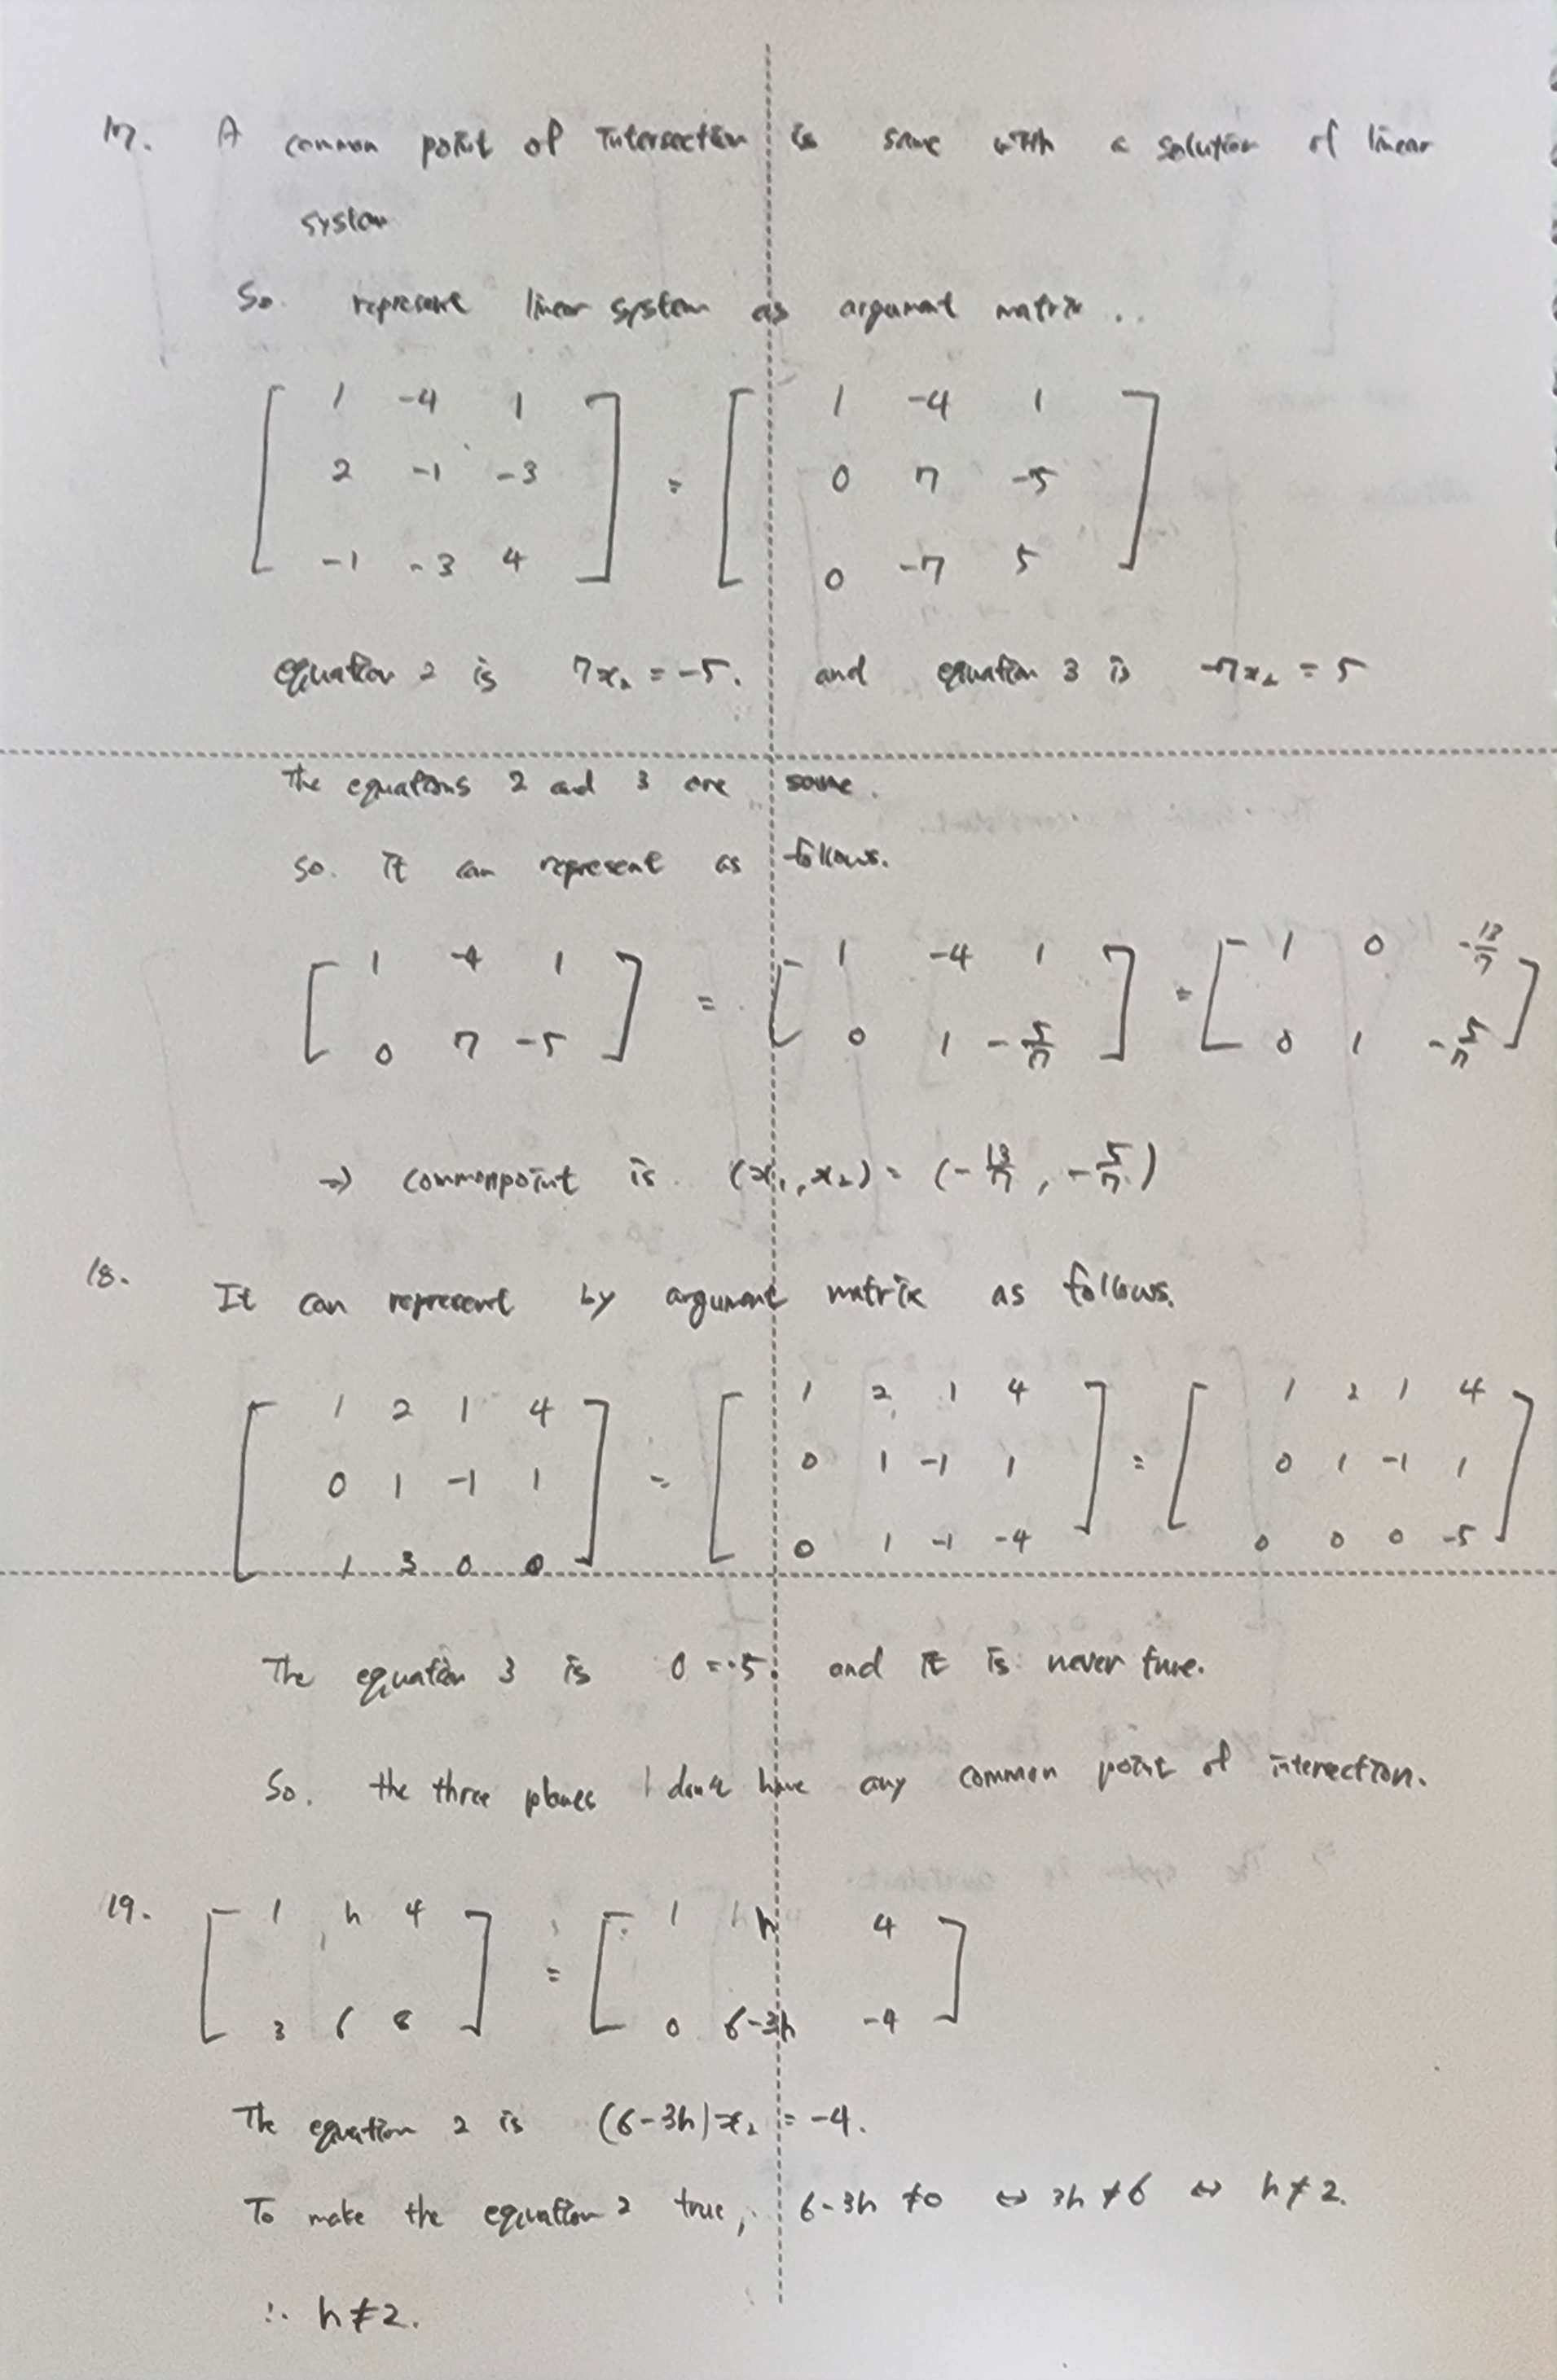 17. A common point of intersection is same with a solution of linear
system
So. represent linear system as argument matrix ..
[ 1 -4 1 ] = [ 1 -4 1 ]
[ 2 -1 -3 ] [ 0 7 -5 ]
[ -1 -3 4 ] [ 0 -7 5 ]
equation 2 is 7x₂ = -5. and equation 3 is -7x₂ = 5
The equations 2 and 3 are same.
So. It can represent as follows.
[ 1 -4 1 ] = [ 1 -4 1 ] = [ 1 0 -13/7 ]
[ 0 7 -5 ] [ 0 1 -5/7 ] [ 0 1 -5/7 ]
→ commonpoint is (x₁, x₂) = (-13/7, -5/7)
18. It can represent by argument matrix as follows.
[ 1 2 1 4 ] = [ 1 2 1 4 ] = [ 1 2 1 4 ]
[ 0 1 -1 1 ] [ 0 1 -1 1 ] [ 0 1 -1 1 ]
[ 1 3 0 0 ] [ 0 1 -1 -4 ] [ 0 0 0 -5 ]
The equation 3 is 0 = -5. and it is never true.
So. the three planes don't have any common point of interection.
19. [ 1 h 4 ] = [ 1 h 4 ]
[ 3 6 8 ] [ 0 6-3h -4 ]
The equation 2 is (6-3h)x₂ = -4.
To make the equation 2 true, 6-3h ≠0 ⇔ 3h ≠6 ⇔ h≠2.
∴ h≠2.